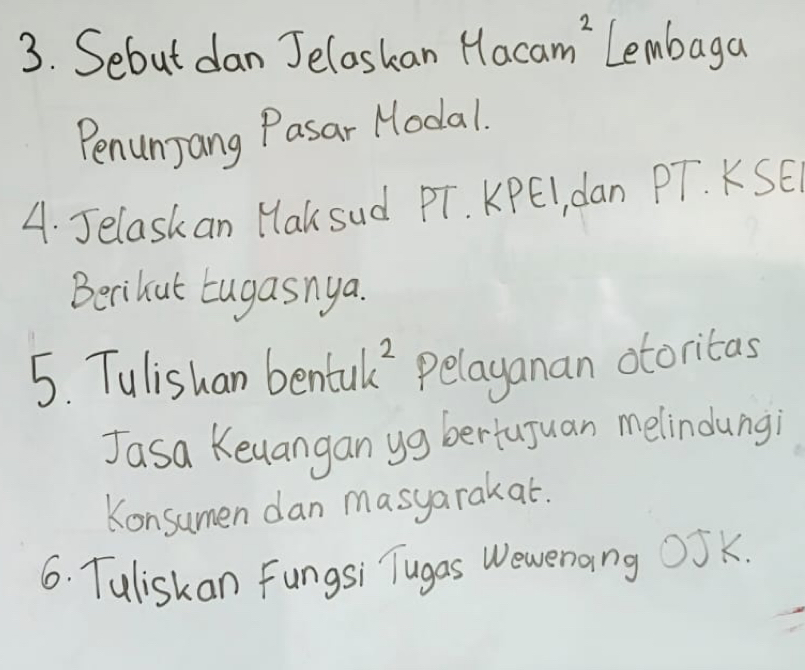 3. Sebut dan Jelaskan Macam² Lembaga
Penunjang Pasar Modal.
4. Jelaskan Maksud PT. KPEI, dan PT. KSEI
Berikut tugasnya.
5. Tuliskan bentuk² Pelayanan otoritas
Jasa Keuangan yg bertujuan melindungi
Konsumen dan masyarakat.
6. Tuliskan Fungsi Tugas Wewenang OJK.